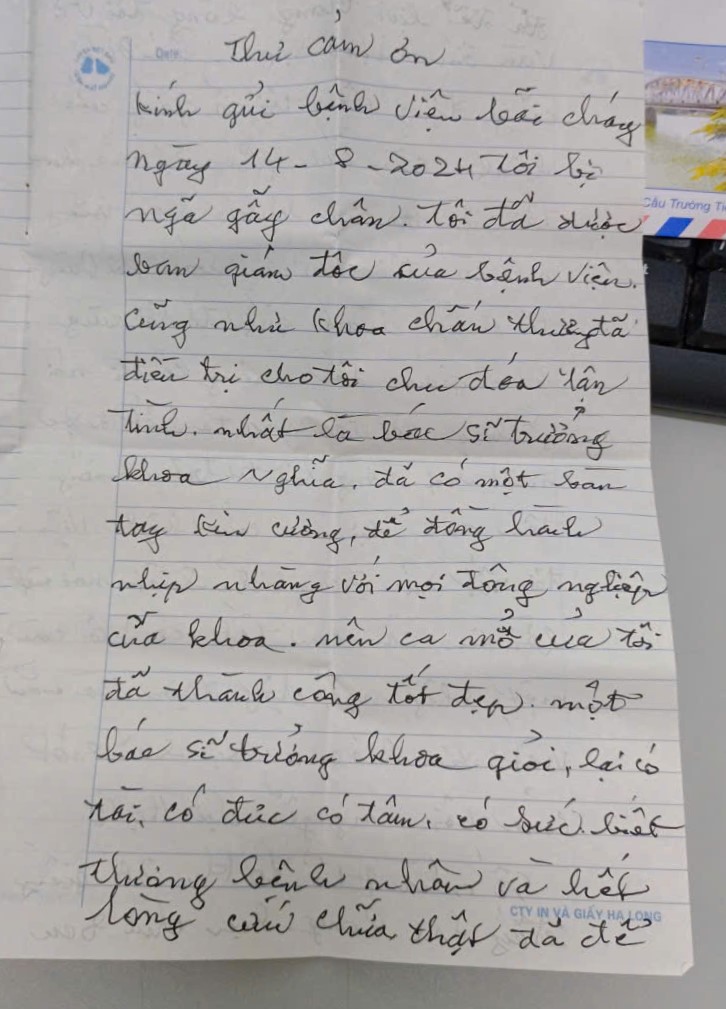 Date
Thư cảm ơn
Kính gửi bệnh viện bãi cháy
ngày 14-8-2024 tôi bị
ngã gẫy chân. tôi đã được
ban giám đốc của bệnh viện.
cũng như khoa chấn thương đã
điều trị cho tôi chu đáo tận
tình. nhất là bác sĩ trưởng
khoa Nghĩa. đã có một bàn
tay kiên cường, để đồng hành
nhịp nhàng với mọi đồng nghiệp
của khoa. nên ca mổ của tôi
đã thành công tốt đẹp. một
bác sĩ trưởng khoa giỏi, lại có
tài, có đức có tâm, có sức. biết
thương bệnh nhân và hết
lòng cứu chữa thật đã để
CTY IN VÀ GIẤY HẠ LONG
Cầu Trường Ti